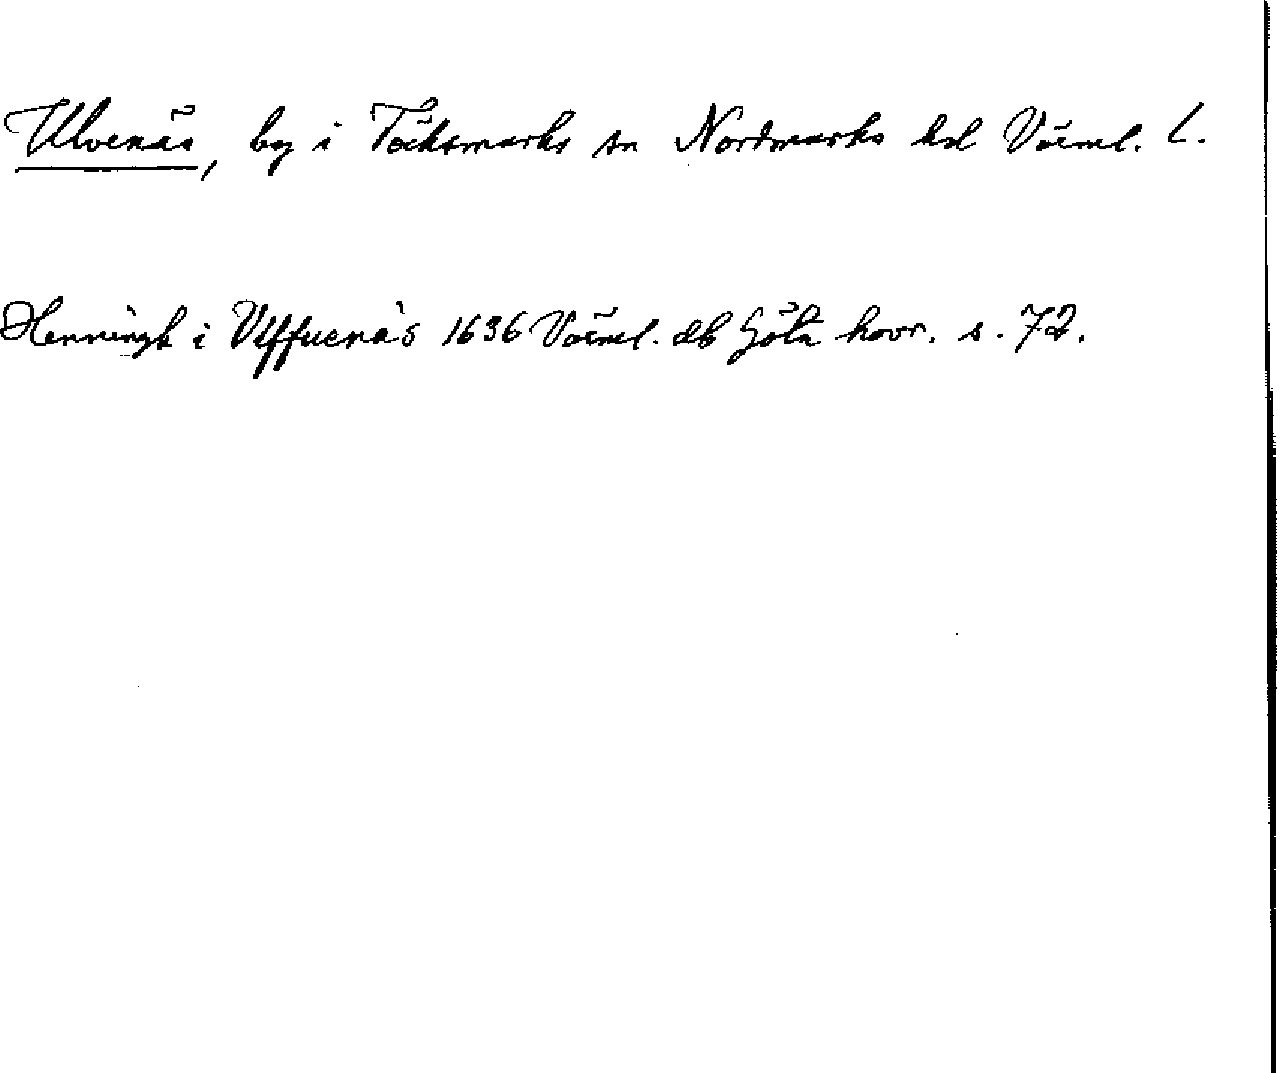 Ulvenäs, by i Töcksmarks sn Nordmarks hd Värml. l.
Henningh i Ulffuenäs 1636 Värml. db Göta hovr. s. 72.